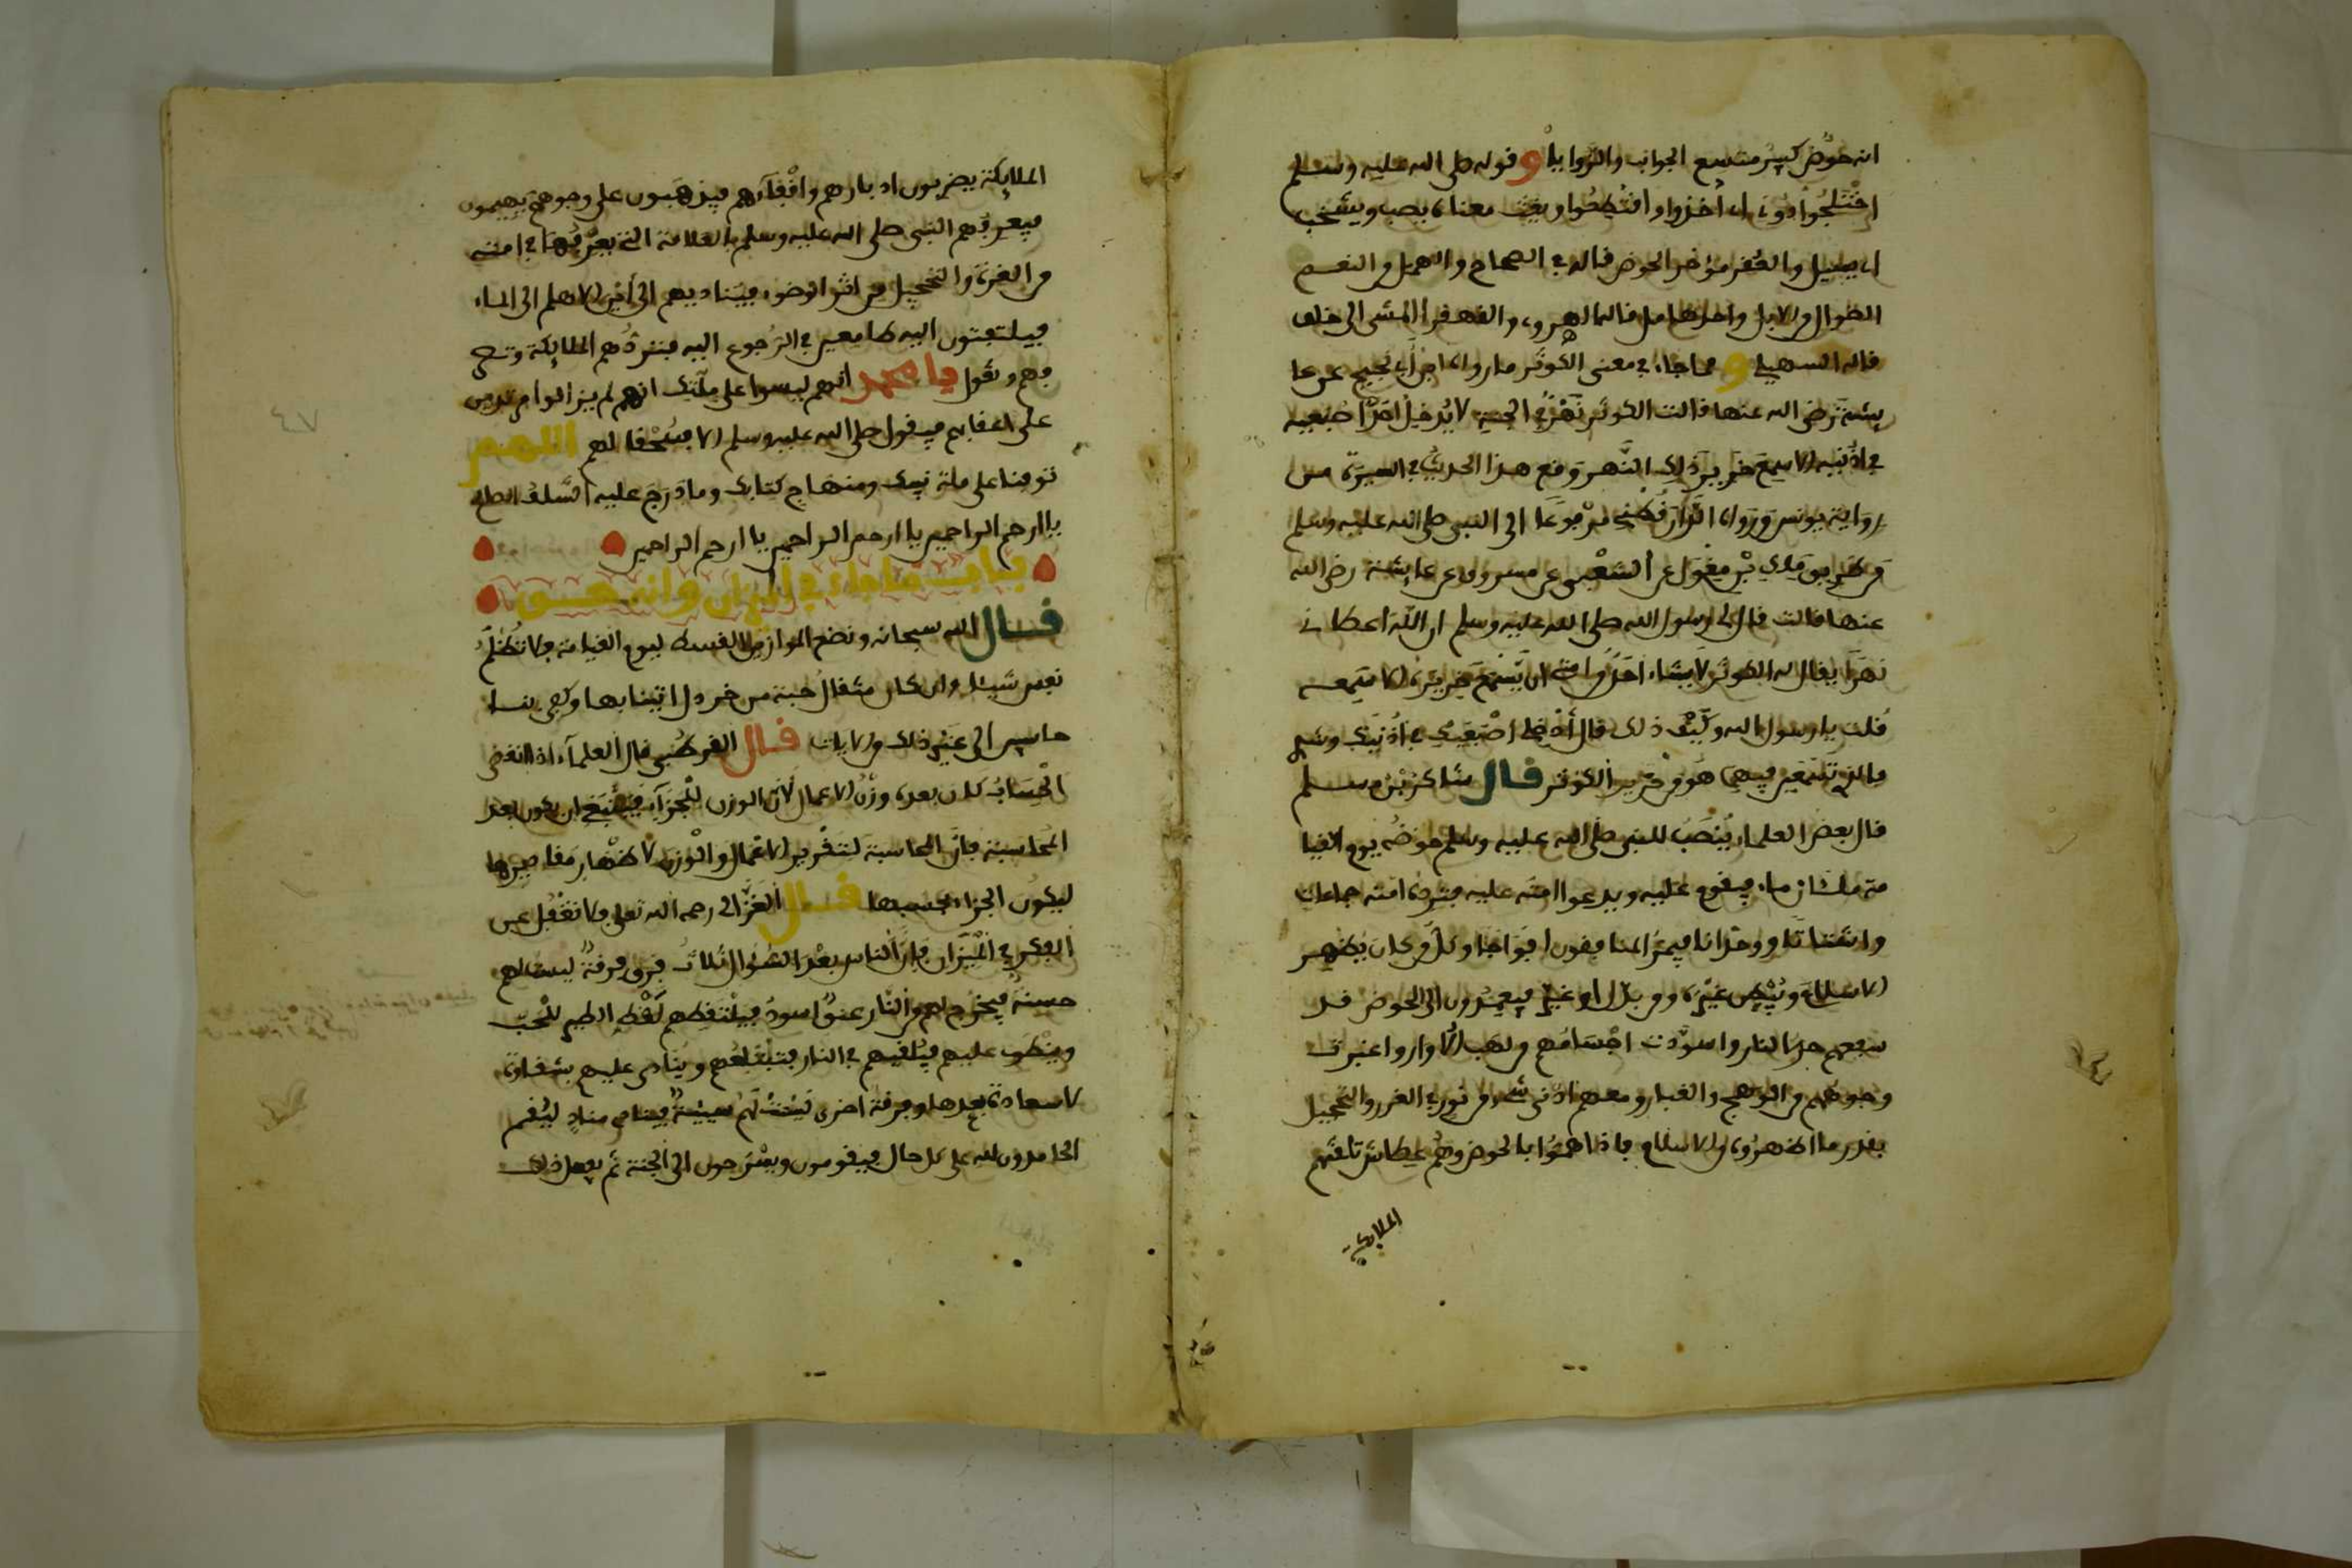 انه حوض كبير متسع الجوانب والزوايا وقوله صلى الله عليه وسلم
اختلجوا دونى اى اخذوا واقتطعوا ويغت معناه يصب ويشخب
اى يسيل والعقر مؤخر الحوض قاله فى الصحاح والهمل من النعم
الضوال من الابل واحدها هامل قاله الهروى والقهقرا المشى الى خلف
قاله السهيلى ومما جاء فى معنى الكوثر ما رواه ابن ابى نجيح عن عا
يشة رضى الله عنها قالت الكوثر نهر فى الجنة لا يدخل احد اصبعيه
فى اذنيه الا سمع خرير ذلك النهر وقع هذا الحديث فى السيرة من
رواية يونس ورواه الدارقطني مرفوعا الى النبى صلى الله عليه وسلم
من طريق مالك بن مغول عن الشعبى عن مسروق عن عايشة رضى الله
عنها قالت قال لى رسول الله صلى الله عليه وسلم ان الله اعطانى
نهرا يقال له الكوثر لا يشاء احد من امتى ان يسمع خريره الا سمعه
قلت يا رسول الله وكيف ذلك قال أدخلى اصبعيك فى اذنيك وشدى
فالذى تسمعين فيهما هو من خرير الكوثر قال شاكر بن مسلم
قال بعض العلماء ينصب للنبى صلى الله عليه وسلم حوضه يوم القيا
مة ملئان ماء فيقوم عليه ويدعوا امته عليه فترده امته جماعات
واشتاتا ووحدانا فيمر المنافقون افواجا وكل من كان يظهر
الاسلام ويبطن غيره ومن بدل او غير فيعمدون الى الحوض قد
سفعهم حر النار واسودت اجسامهم من لهب الاوار واغبرت
وجوههم من الوهج والغبار ومعهم ادنى شىء من نور فى الغرر والتحجيل
بقدر ما اظهروه من الاسلام فاذا هموا بالحوض وهم عطاش تلقتهم
الملايكة
الملايكة يضربون ادبارهم واقفاءهم فيذهبون على وجوههم يهيمون
فيعرفهم النبى صلى الله عليه وسلم بالعلامة التى يعرفها فى امته
من الغرة والتحجيل من اثر الوضوء فيناديهم الى أين الا هلم الى الماء
فيلتفتون اليه طامعين فى الرجوع اليه فتردهم الملايكة وتحى
بهم وتقول يا محمد انهم ليسوا على ملتك انهم لم يزالوا مرتدين
على اعقابهم فيقول صلى الله عليه وسلم الا فسحقا لهم اللهم
توفنا على ملة نبيك ومنهاج كتابك وما درج عليه السلف الصالح
يا ارحم الراحمين يا ارحم الراحمين يا ارحم الراحمين
باب ما جاء فى الميزان وانه حق
قال الله سبحانه ونضع الموازين القسط ليوم القيامة فلا تظلم
نفس شيئا وان كان مثقال حبة من خردل اتينا بها وكفى بنا
حاسبين الى غير ذلك من الايات قال القرطبى قال العلماء اذا انقضى
الحساب كان بعده وزن الاعمال لان الوزن للجزاء فينبغى ان يكون بعد
المحاسبة فان المحاسبة لتقرير الاعمال والوزن لاظهار مقاديرها
ليكون الجزاء بحسبها قال الغزالى رحمه الله تعلى ولا تغفل عن
الفكر فى الميزان فان الناس بعد السؤال ثلاث فرق فرقة ليس لهم
حسنة فيخرج لهم من النار عنق اسود فيلتقطهم لقط الطير للحب
وينطوى عليهم فيلقيهم فى النار فتبتلعهم وينادى عليهم بشقاوة
لا سعادة بعدها وفرقة اخرى ليست لهم سيئة فينادى مناد ليقم
الحامدون لله على كل حال فيقومون ويسرحون الى الجنة ثم يفعل ذلك
٤٧